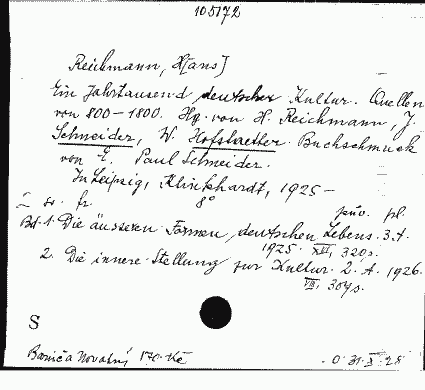 105172
Reichmann, H[ans]
Ein Jahrtausend deutscher Kultur. Quellen
von 800-1800. Hg. von H. Reichmann, J.
Schneider, W. Hofstaetter. Buchschmuck
von E. Paul Schneider.
In Leipzig, Klinkhardt, 1925-
8°
pův. pl.
Bd. 1. Die äusseren Formen deutschen Lebens. 3. A.
1925. XVI, 320 s.
2. Die innere Stellung zur Kultur. 2. A. 1926.
VIII, 304 s.
S
170. Kč